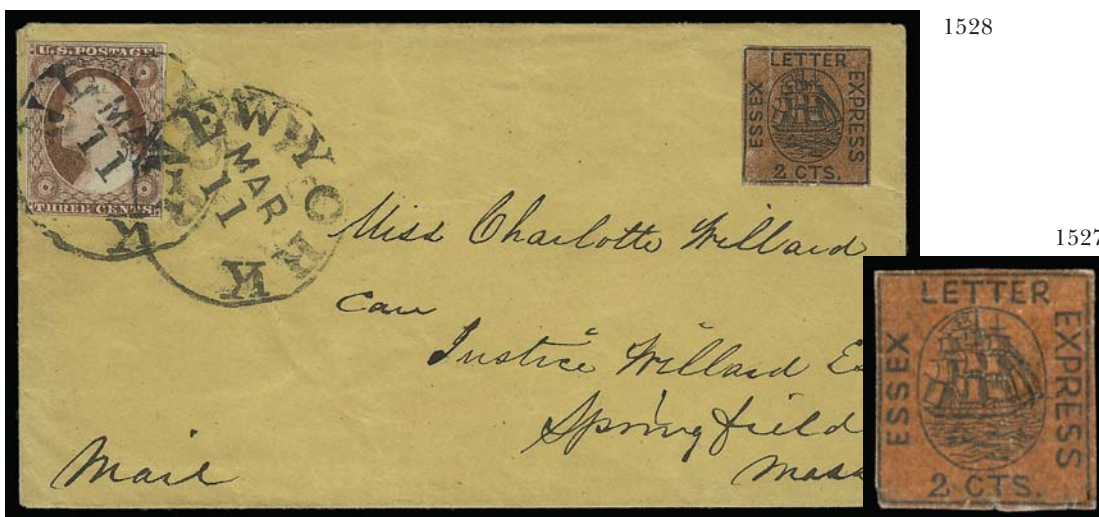 1528
U.S. POSTAGE
THREE CENTS
MAR
11
NEW YORK
MAR
11
LETTER
ESSEX
EXPRESS
2 CTS.
Miss Charlotte Willard
Care
Justice Willard Es
Springfield
Mass
Mail
1527
LETTER
ESSEX
EXPRESS
2 CTS.